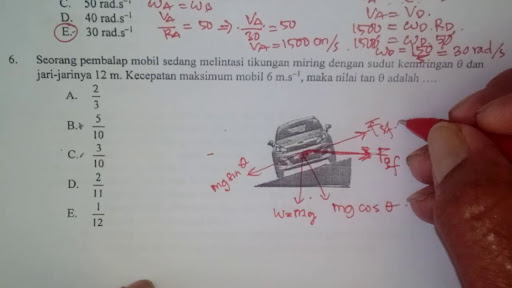 C. 50 rad.s⁻¹ ωA = ωB
D. 40 rad.s⁻¹ VA/RA = 50 ⇒ VA/30 = 50
E. 30 rad.s⁻¹ VA = 1500 cm/s.
VA = VD.
1500 = ωD. RD.
1500 = ωD. 50
ωD = 150/5 = 30 rad/s
6. Seorang pembalap mobil sedang melintasi tikungan miring dengan sudut kemiringan θ dan
jari-jarinya 12 m. Kecepatan maksimum mobil 6 m.s⁻¹, maka nilai tan θ adalah ....
A. 2/3
B. 5/10
C. 3/10
D. 2/11
E. 1/12
mg sin θ
W=mg
mg cos θ